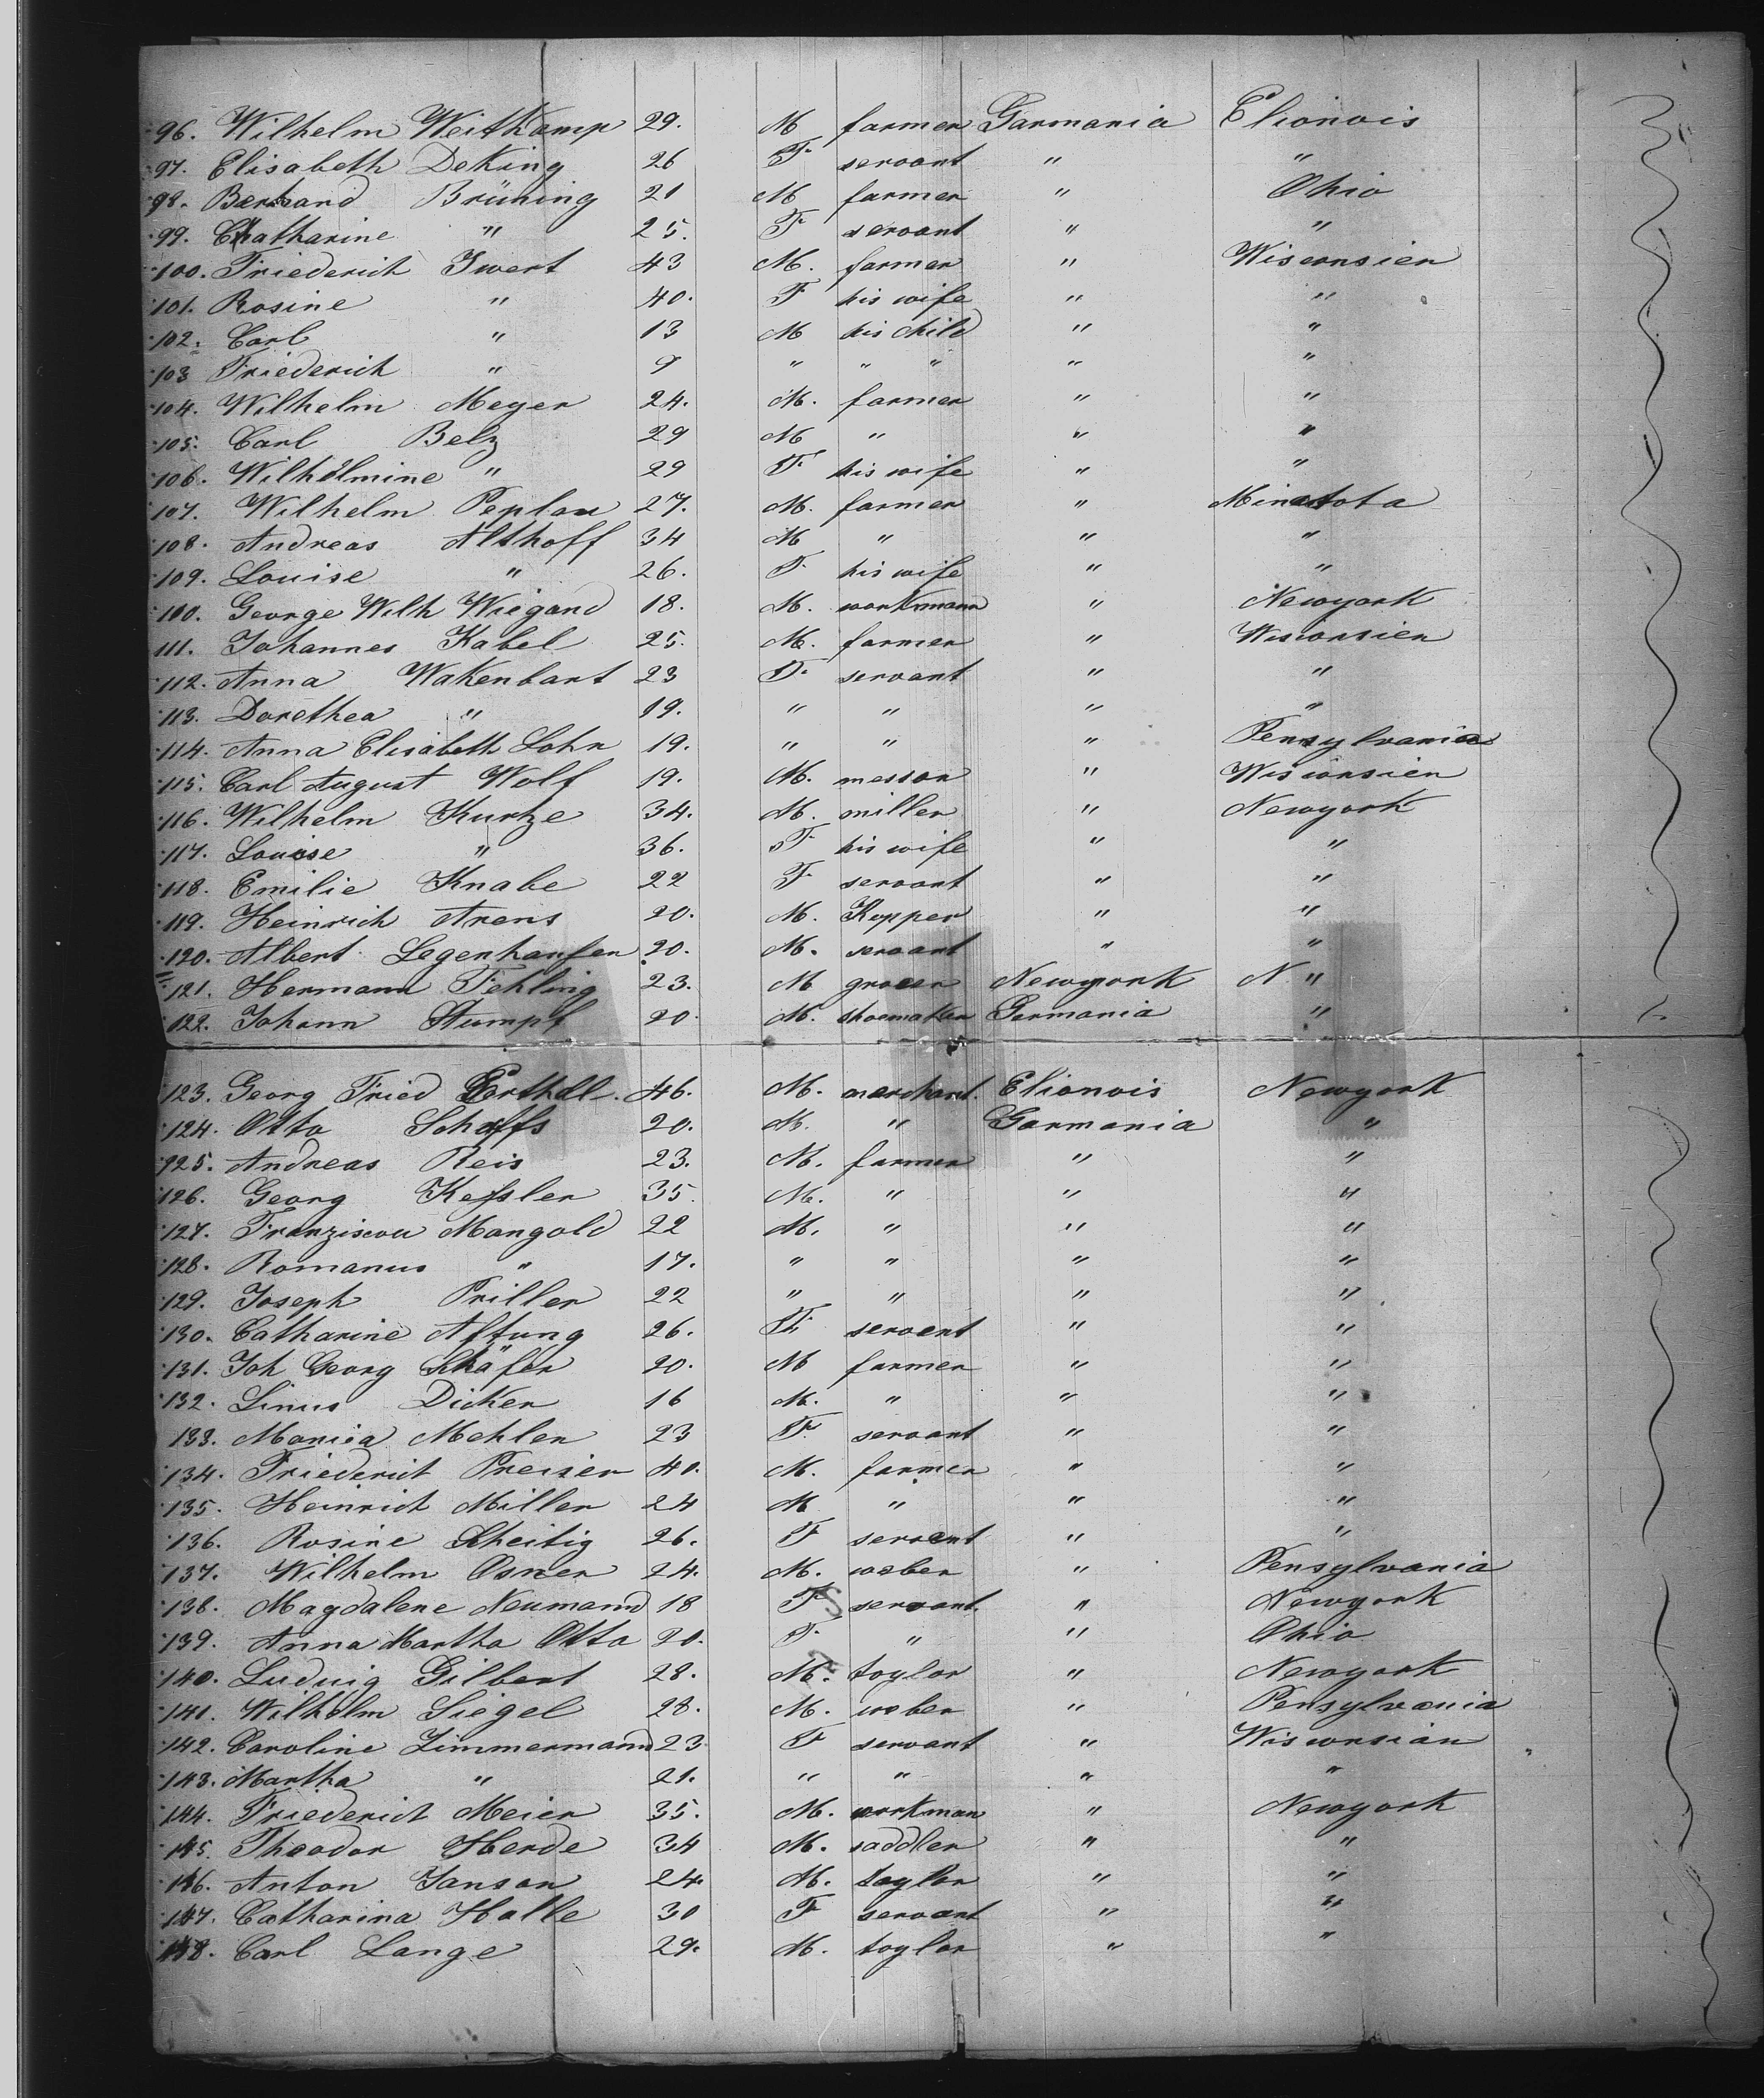 96. Wilhelm Weitkamp 29. M farmer Garmania Elionois
97. Elisabeth DeKing 26 F servant " "
98. Bernard Brüning 21 M farmer " Ohio
99. Chatharine " 25. F servant " "
100. Friederich Iwert 43 M. farmer " Wisconsien
101. Rosine " 40. F his wife " "
102. Carl " 13 M his child " "
103 Friederich " 9 " " " " "
104. Wilhelm Meyer 24. M. farmer " "
105. Carl Belz 29 M " " "
106. Wilhelmine " 29 F his wife " "
107. Wilhelm Peplau 27. M. farmer " Minatota
108. Andreas Althoff 34 M " " "
109. Louise " 26. F his wife " "
100. George Wilh Wiegand 18. M. workmann " Newyork
111. Johannes Kabel 25. M. farmer " Wisconsien
112. Anna Wakenbart 23 F servant " "
113. Dorethea " 19. " " " "
114. Anna Elisabeth Lohr 19. " " " Pensylvania
115. Carl August Wolf 19. M. messon " Wisconsien
116. Wilhelm Kurtze 34. M. miller " Newyork
117. Louise " 36. F his wife " "
118. Emilie Knabe 22 F servant " "
119. Heinrich Arens 20. M. Kupper " "
120. Albert Legenhausen 20. M. servant " "
121. Hermann Fehling 23. M grocer Newyork N "
122. Johann Stumpf 20. M. shoemaker Germania "
123. Georg Fried 46. M. merchant. Elionois Newyork
124. Otto Schaffs 20. M. " Garmania "
125. Andreas Reis 23. M. farmer " "
126. Georg Kessler 35. M. " " "
127. Mangold 22 M. " " "
128. Romanus " 17. " " " "
129. Joseph Friller 22 " " " "
130. Catharine 26. F. servent " "
131. Joh Georg Schäfer 20. M farmer " "
132. Linus Dicker 16 M. " " "
133. Mehler 23 F servant " "
134. Friederich Preiser 40. M. farmer " "
135. Heinrich Miller 24 M " " "
136. Rosine Scheitig 26. F servent " "
137. Wilhelm Osner 24. M. weber " Pensylvania
138. Magdalene Neumann 18 F servant. " Newyork
139. Anna Martha Otto 20. F " " Ohio
140. Ludwig Gilbert 28. M. taylor " Newyork
141. Wilhelm Siegel 28. M. weber " Pensylvania
142. Caroline Zimmermann 23 F servant " Wisconsian
143. Martha " 21. " " " "
144. Friederich Meier 35. M. workman " Newyork
145. Theodor Herde 34 M. saddler " "
146. Anton Janson 24. M. taylor " "
147. Catharina Halle 30 F servant " "
148. Carl Lange 29. M. taylor " "